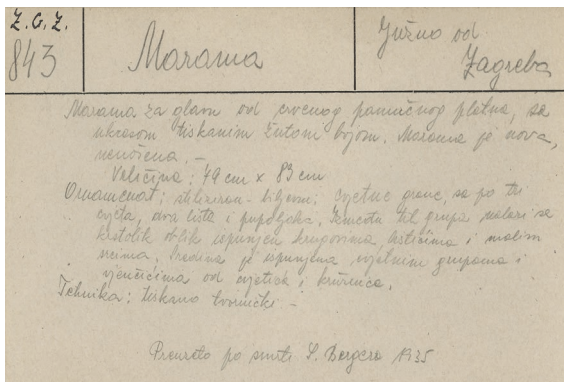 Z.G.Z.
843
Marama
Južno od
Zagreba
Marama za glavu od crvenog pamučnog platna, sa
ukrasom tiskanim žutom bojom. Marama je nova,
nenošena. –
Veličina: 79 cm x 83 cm
Ornamenat: stilizirano biljevni; cvjetne grane, sa po tri
cvjeta, dva lista i pupoljka. Između tih grupa nalazi se
krstolik oblik ispunjen krugovima, listićima i malim
Sredina je ispunjena cvjetnim grupama i
vjenčićima od cvjetića i kružnica.
Tehnika: tiskano tvornički –
Preuzeto po smrti S. Bergera 1935